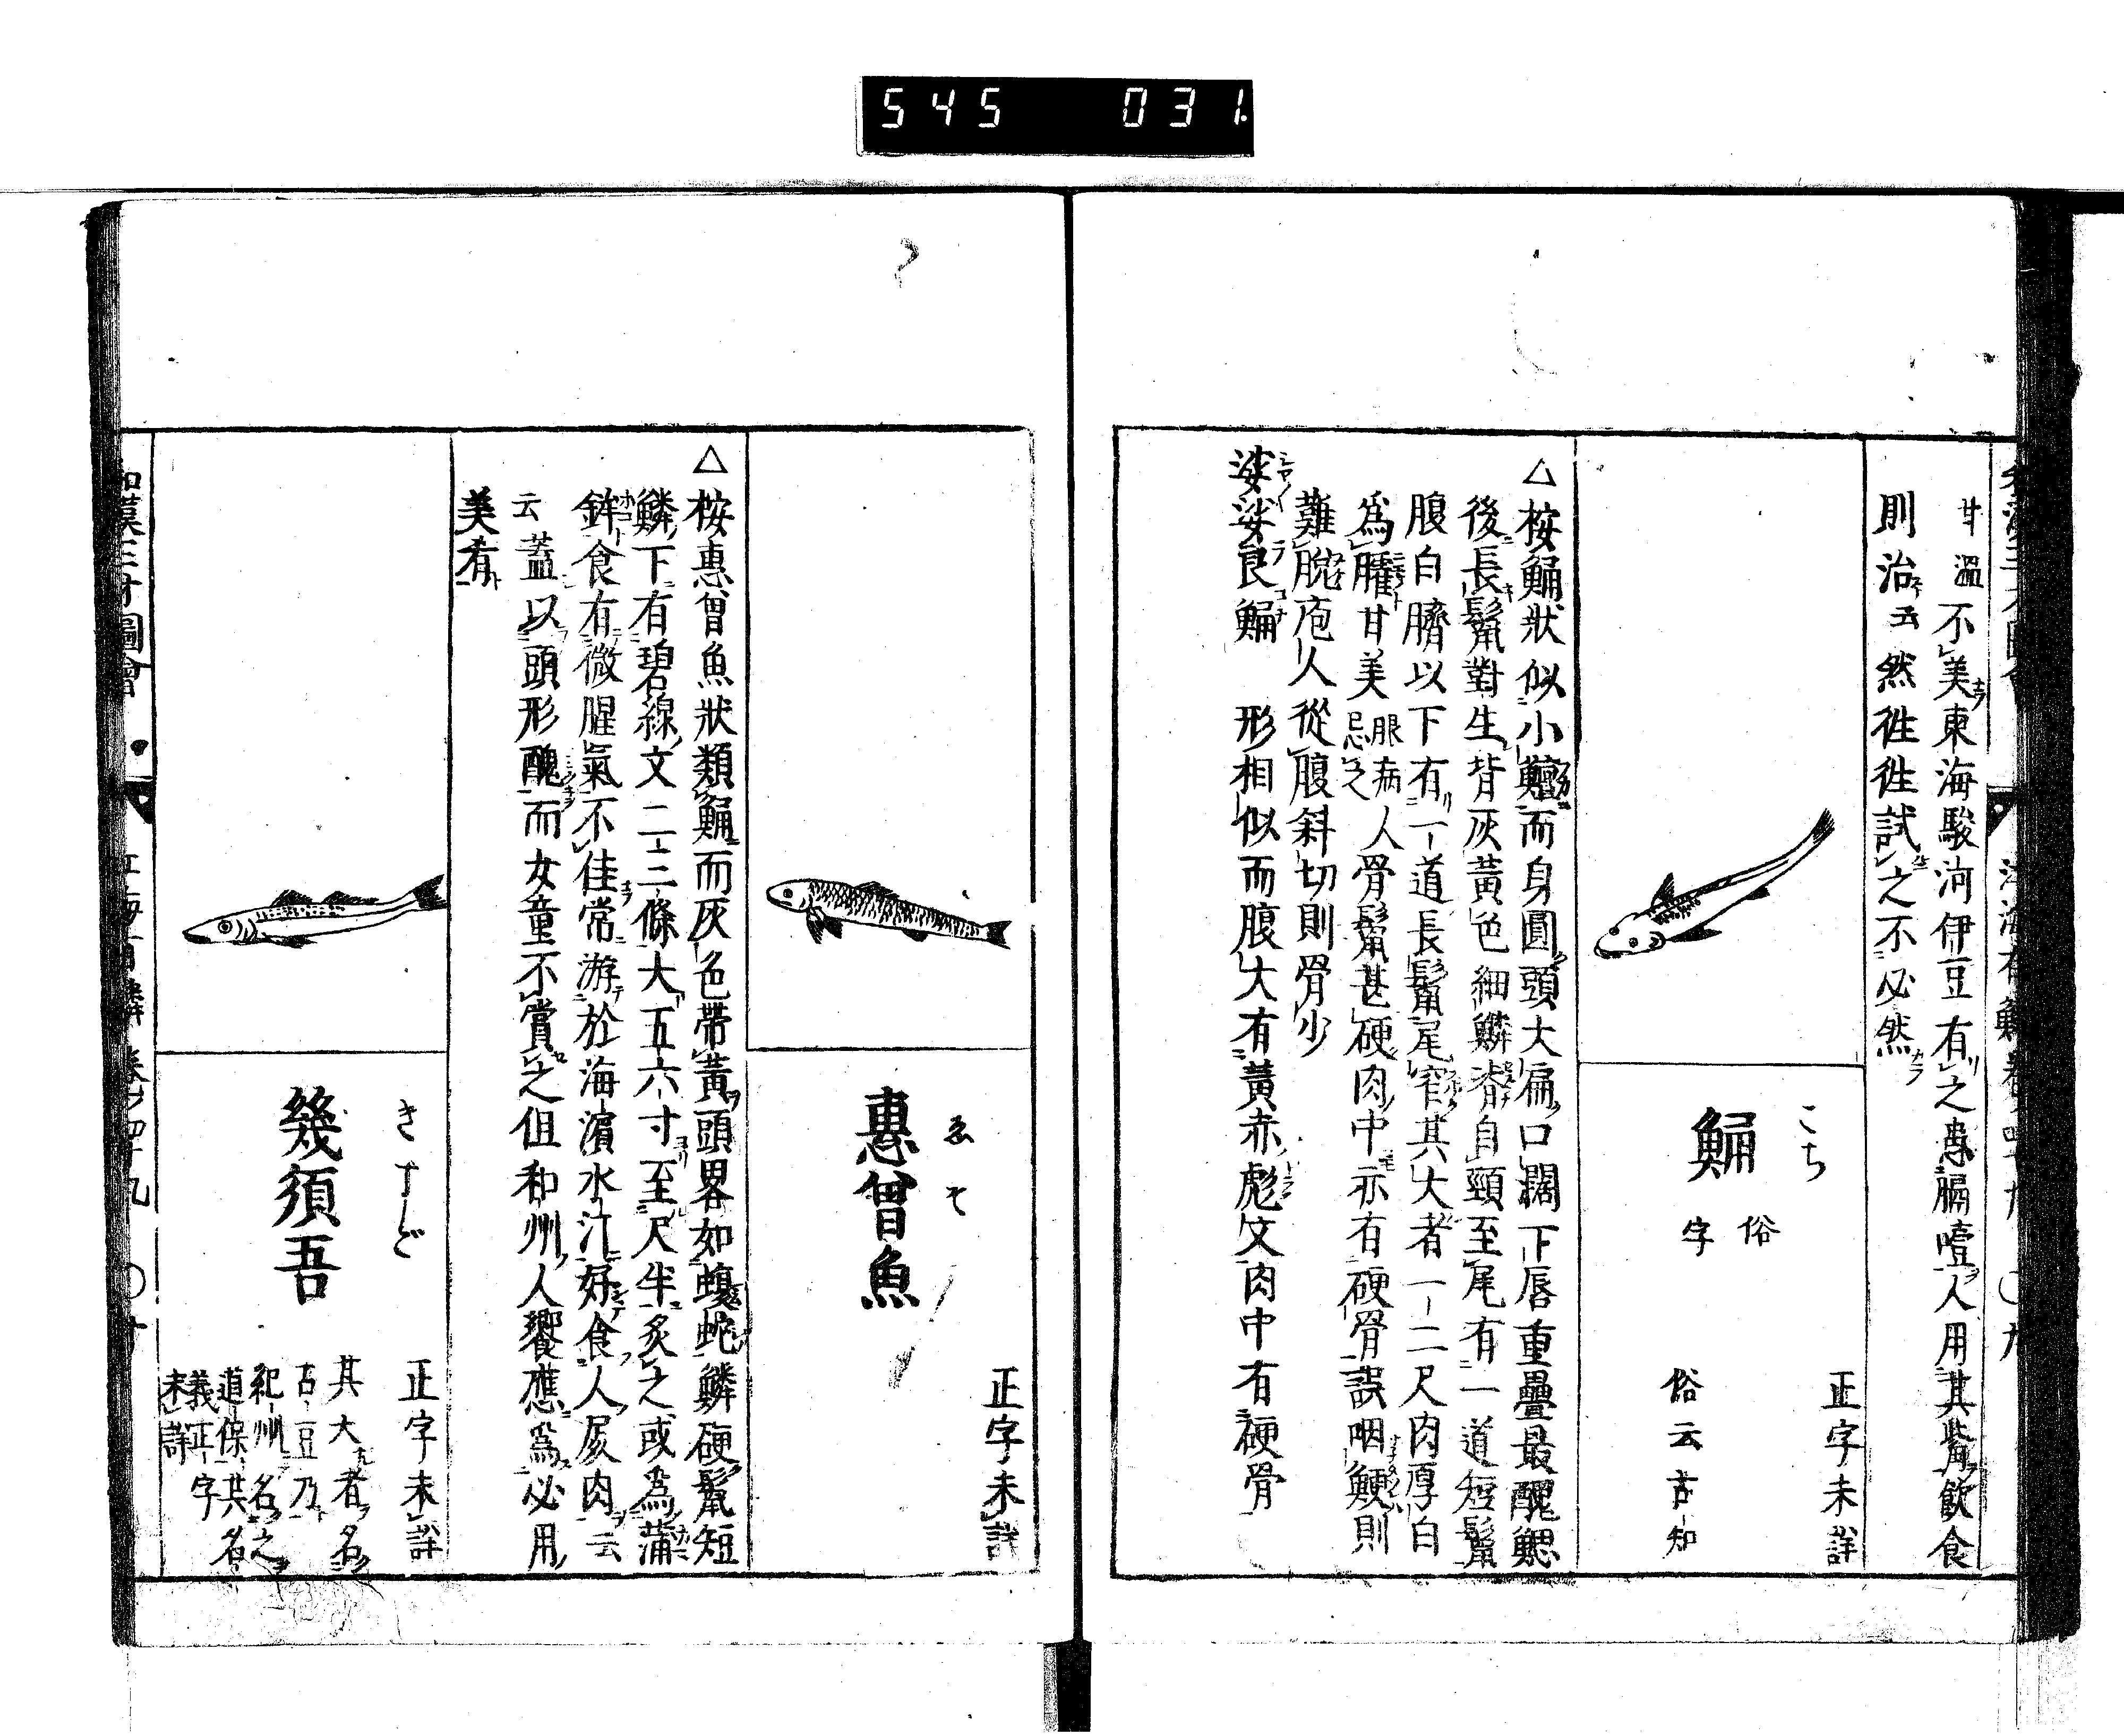 545 031
甘溫不美東海駿河伊豆有之患膈噎人用其觜飲食
則治云然徃徃試之不必然
こち
鯒
俗字
正字未詳
俗云古知
△桉鯒狀似小鱣而身圓頭大扁口闊下唇重疊最醜鰓
後長鬣對生背灰黃色細鱗滑自頸至尾有一道短鬣
腹白臍以下有一道長鬣尾窄其大者一二尺肉厚白
爲臛甘美眼病人忌之骨鬣甚硬肉中亦有硬骨誤咽鯁則
難脫庖人從腹斜切則骨少
娑娑良鯒 形相似而腹大有黃赤彪文肉中有硬骨
ゑそ
惠曾魚
正字未詳
△桉惠曾魚狀類鯒而灰色帶黃頭畧如蝮蛇鱗硬鬣短
鱗下有碧線文二三條大五六寸至尺半炙之或爲蒲
鉾食有微腥氣不佳常游於海濵水汀好食人屍肉云
云蓋以頭形醜而女童不賞之但和州人饗應爲必用
美肴
きすご
幾須吾
正字未詳
其大者名
古豆乃
紀州名之
道保其名
義正字
未詳
和漢三才圖會 江海有鱗 卷ノ四十九 〇十